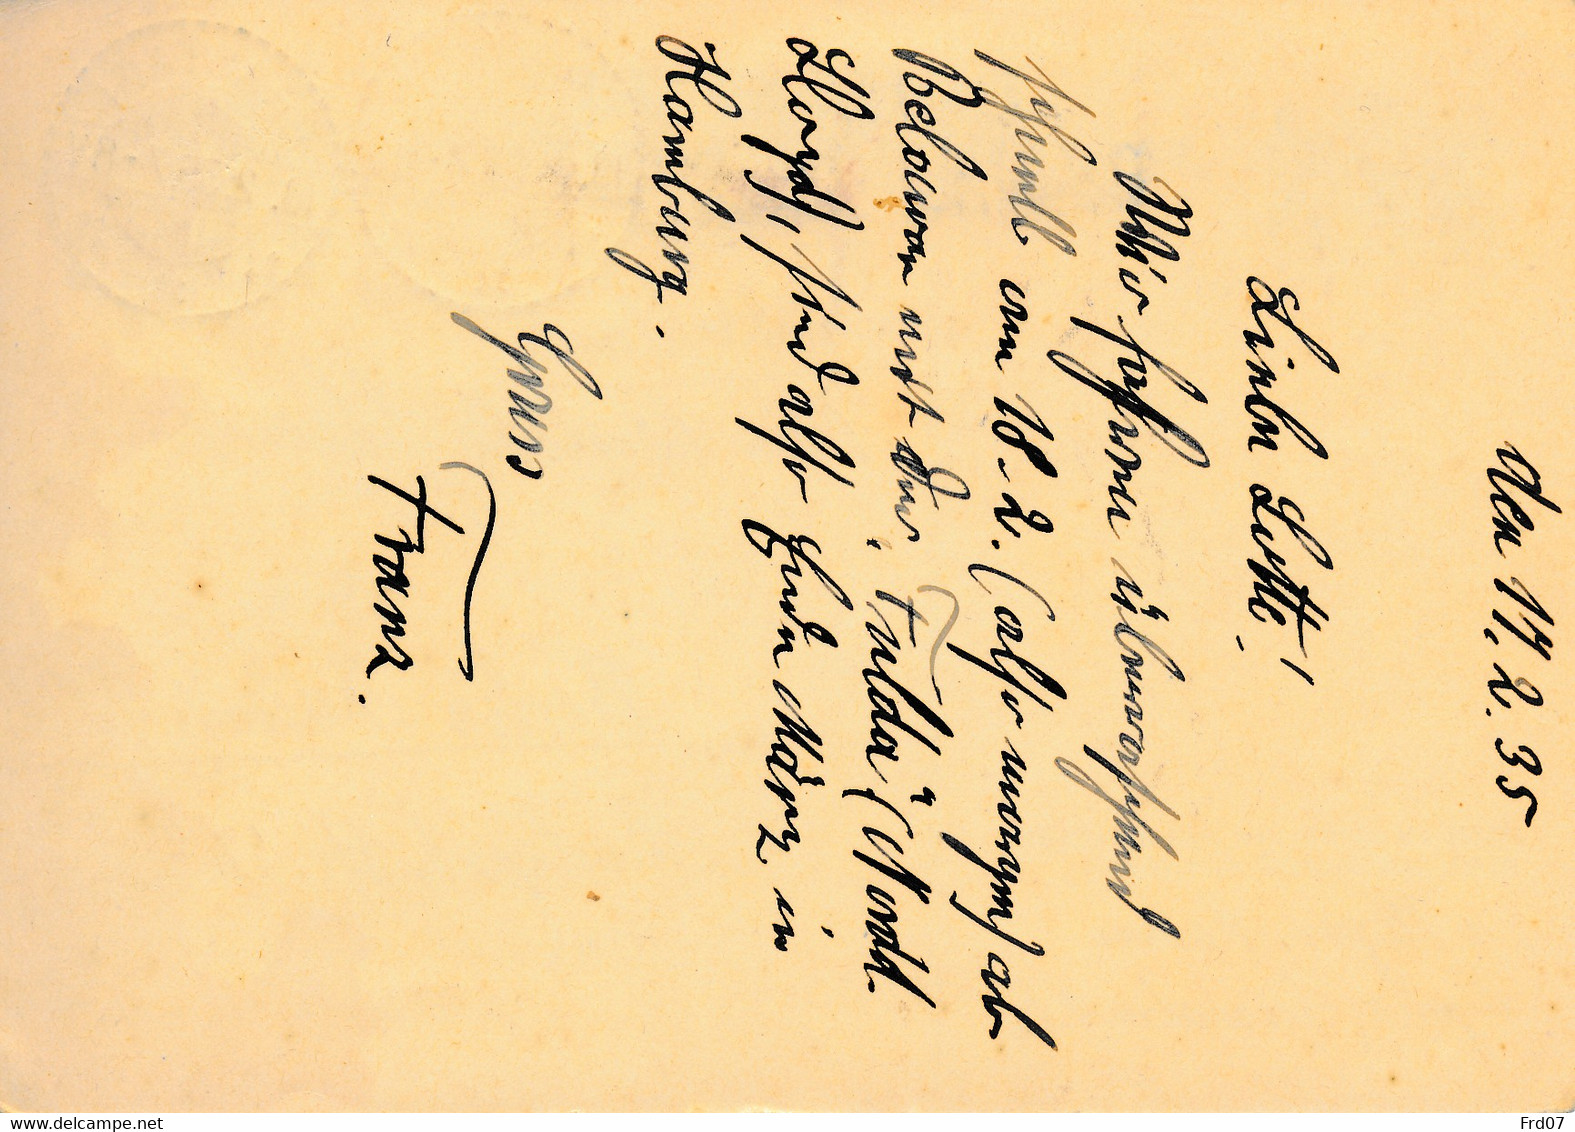 den 17. 2. 35
Liebe Lotte!
Wir fahren überraschend
schnell am 18. 2. (also morgen) ab
Belawan mit dem „Fulda" (Nordd.
Lloyd), sind also Ende März in
Hamburg.
Gruss
Franz.
www.delcampe.net
Frd07